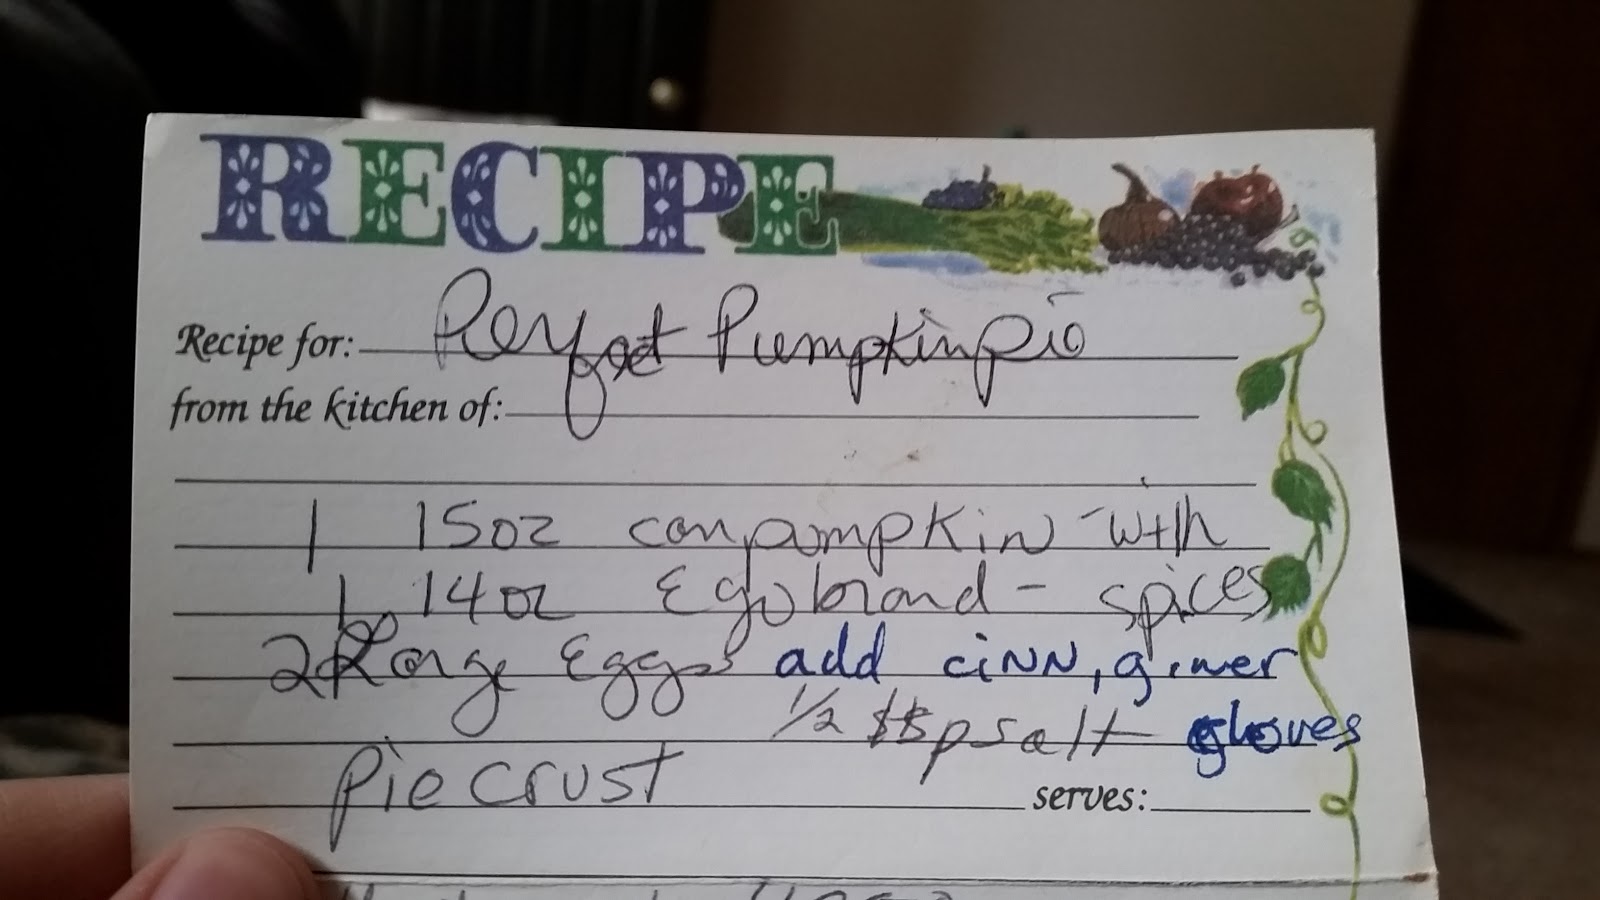 RECIPE
Recipe for: Perfect Pumpkin pie
from the kitchen of:
1 15oz can pumpkin - with
1 14oz Eglo brand - spices
2 Large Eggs add cinn, giner
1/2 tsp salt gloves
pie crust
serves: